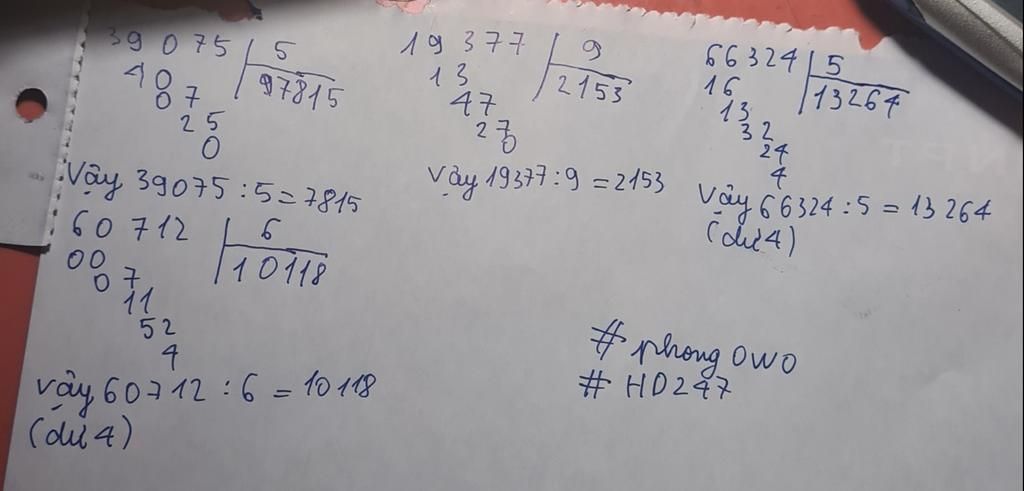 39 075 5
40 97815
07
25
0
Vậy 39075 : 5 = 7815
19 377 9
13 2153
47
27
0
Vậy 19377 : 9 = 2153
66324 5
16 13264
13
32
24
4
Vậy 66324 : 5 = 13 264
(dư 4)
60 712 6
00 10118
07
11
52
4
Vậy 60712 : 6 = 10118
(dư 4)
# phong OWO
# HD247